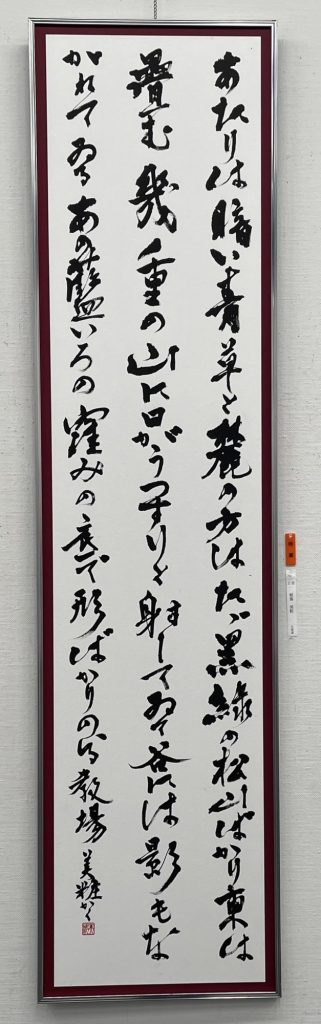 あたりは暗い青草と麓の方はたゞ黒緑の松山ばかり東は
疊む幾重の山に日がうつすりと射してゐて谷には影もな
がれてゐるあの藍いろの窪みの底で形ばかりの分教場 美粧かく